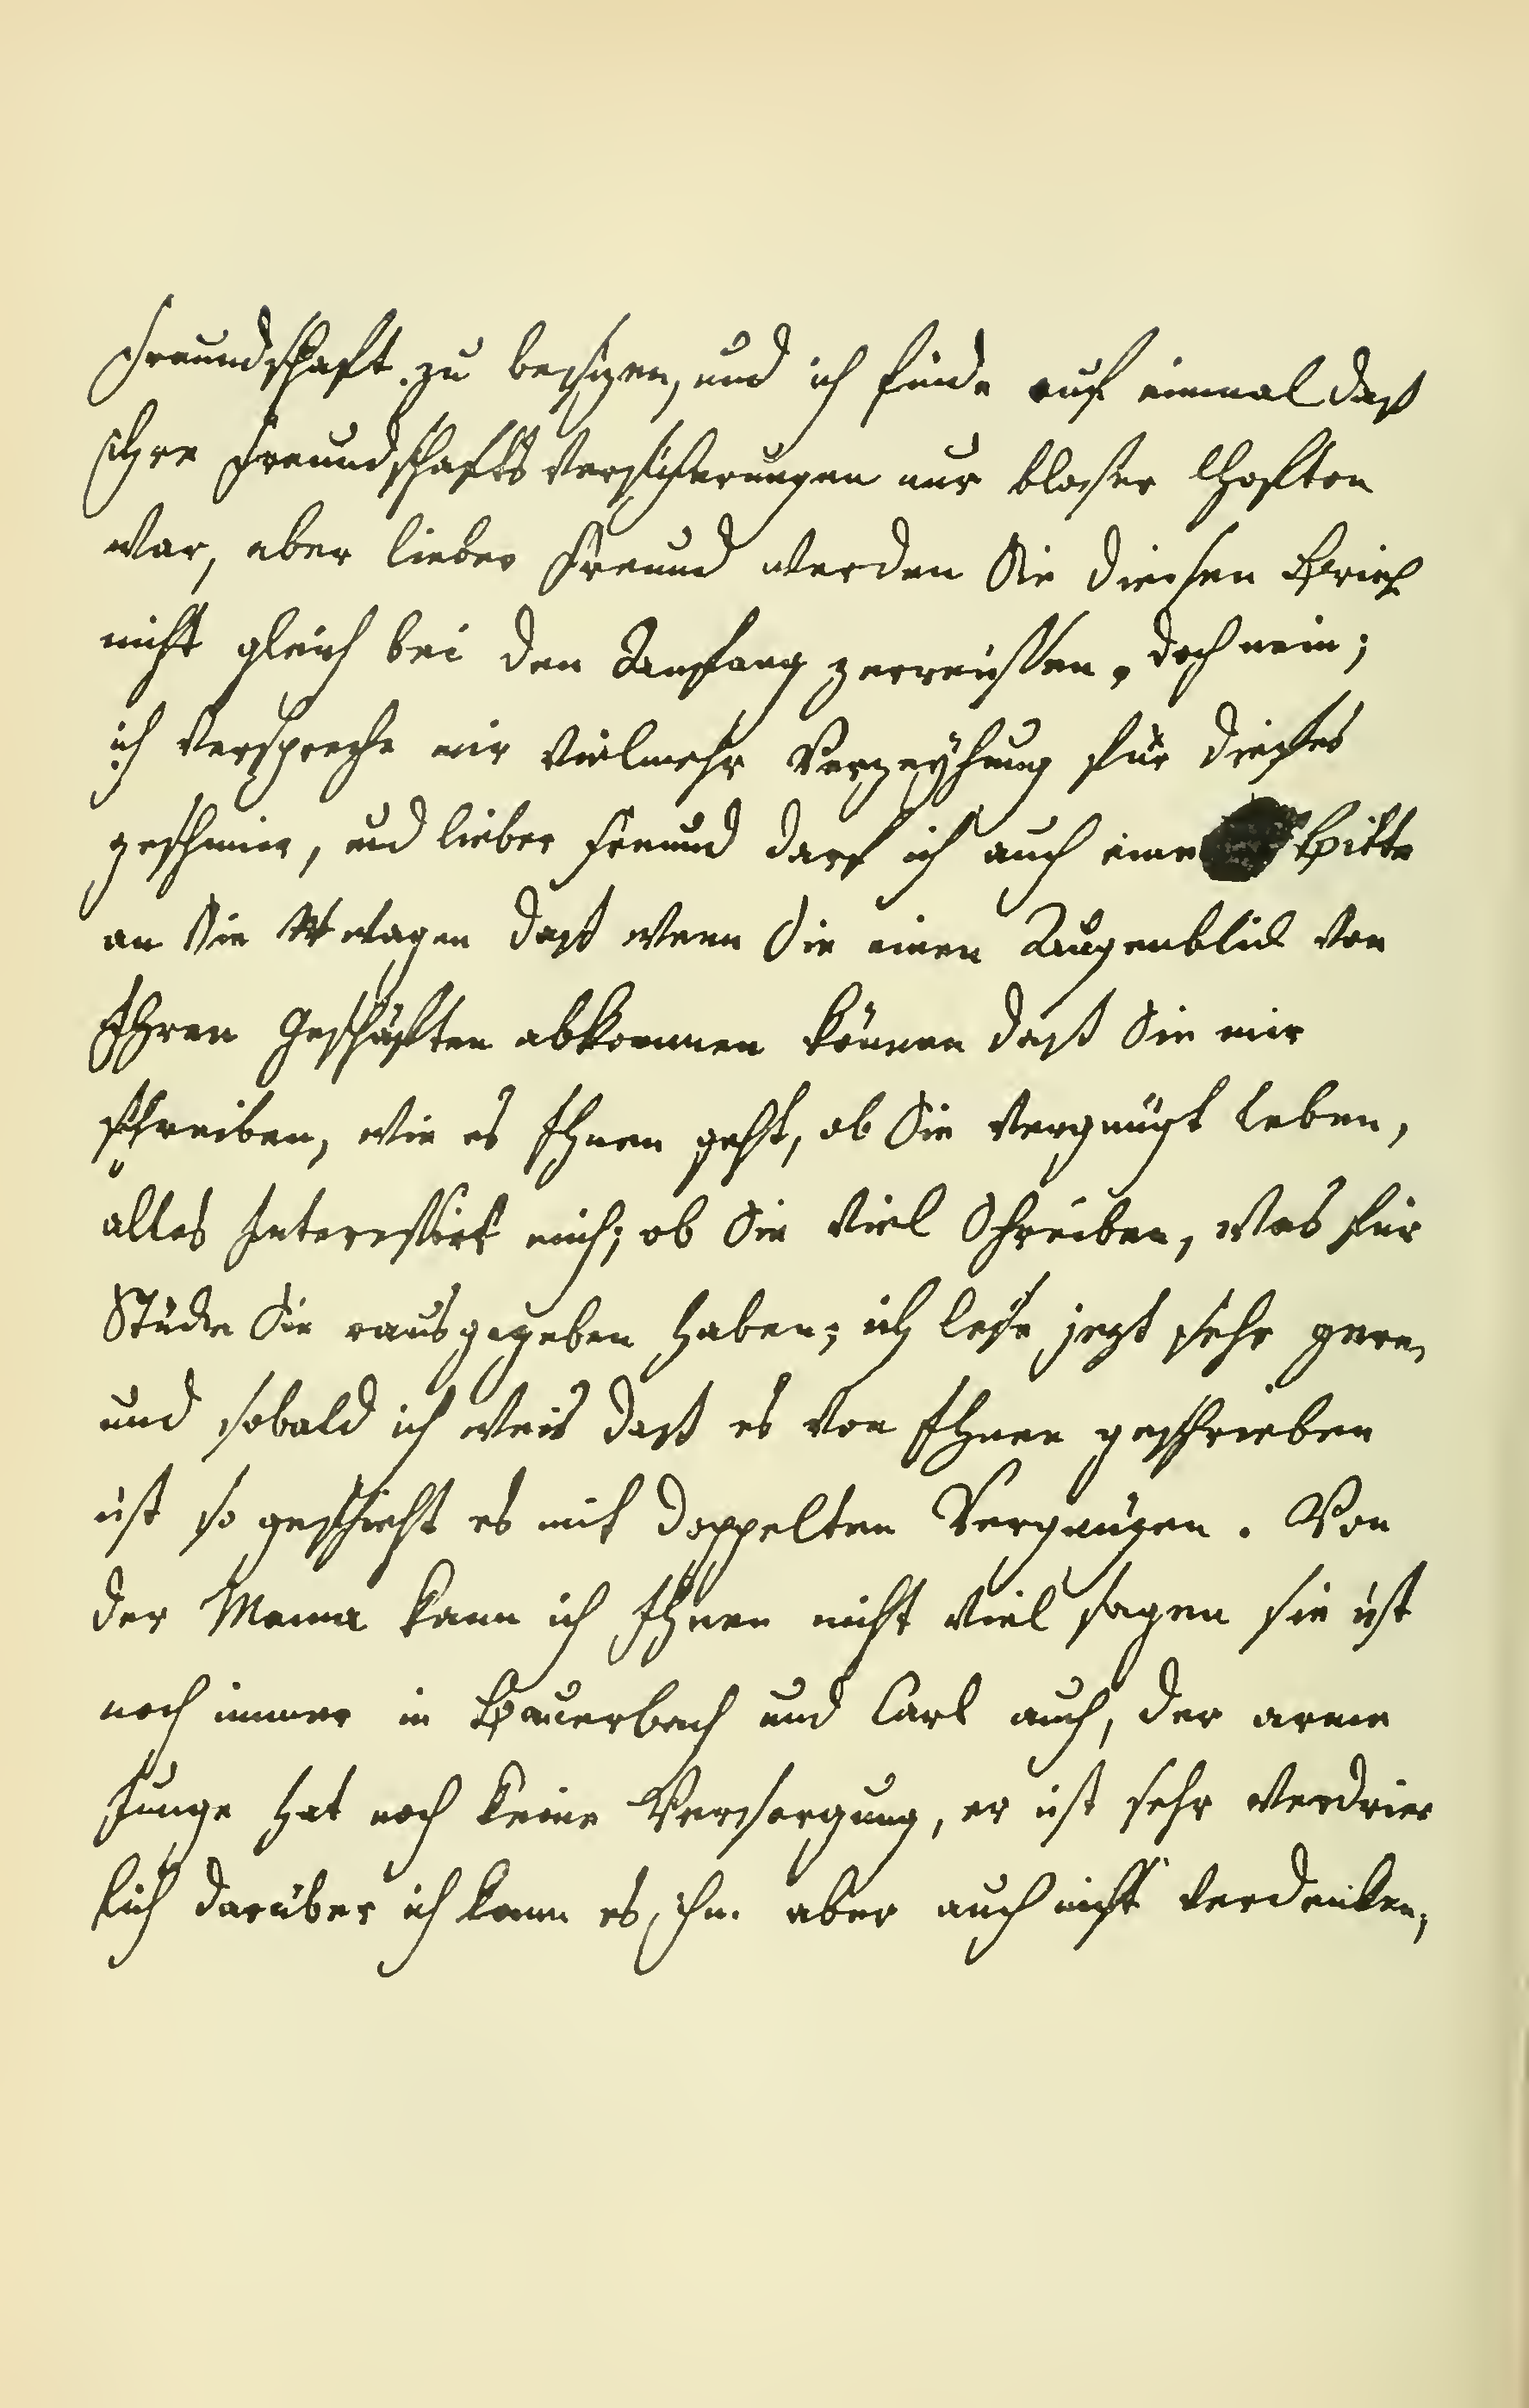 Freundschaft zu besizen, und ich finde auf einmal daß
ihre Freundschafts Versicherungen nur bloser Hofton
war, aber lieber Freund werden Sie diesen Brief
nicht gleich bei den Anfang zerreissen, doch nein;
ich verspreche mir vielmehr Verzeyhung für dieses
geschmier, und lieber Freund darf ich auch eine Bitte
an Sie wagen daß wenn Sie einen Augenblick von
Ihren Geschäften abkommen können daß Sie mir
schreiben, wie es Ihnen geht, ob Sie vergnügt leben,
alles Interessirt mich; ob Sie viel Schreiben, was für
Stücke Sie rausgegeben haben; ich lese jezt sehr gern,
und sobald ich weis daß es von Ihnen geschrieben
ist so geschieht es mit doppelten Vergnügen. Von
der Mama kann ich Ihnen nicht viel sagen sie ist
noch immer in Bauerbach und Carl auch, der arme
Junge hat noch keine Versorgung, er ist sehr verdries
lich darüber ich kann es ihm aber auch nicht verdenken,